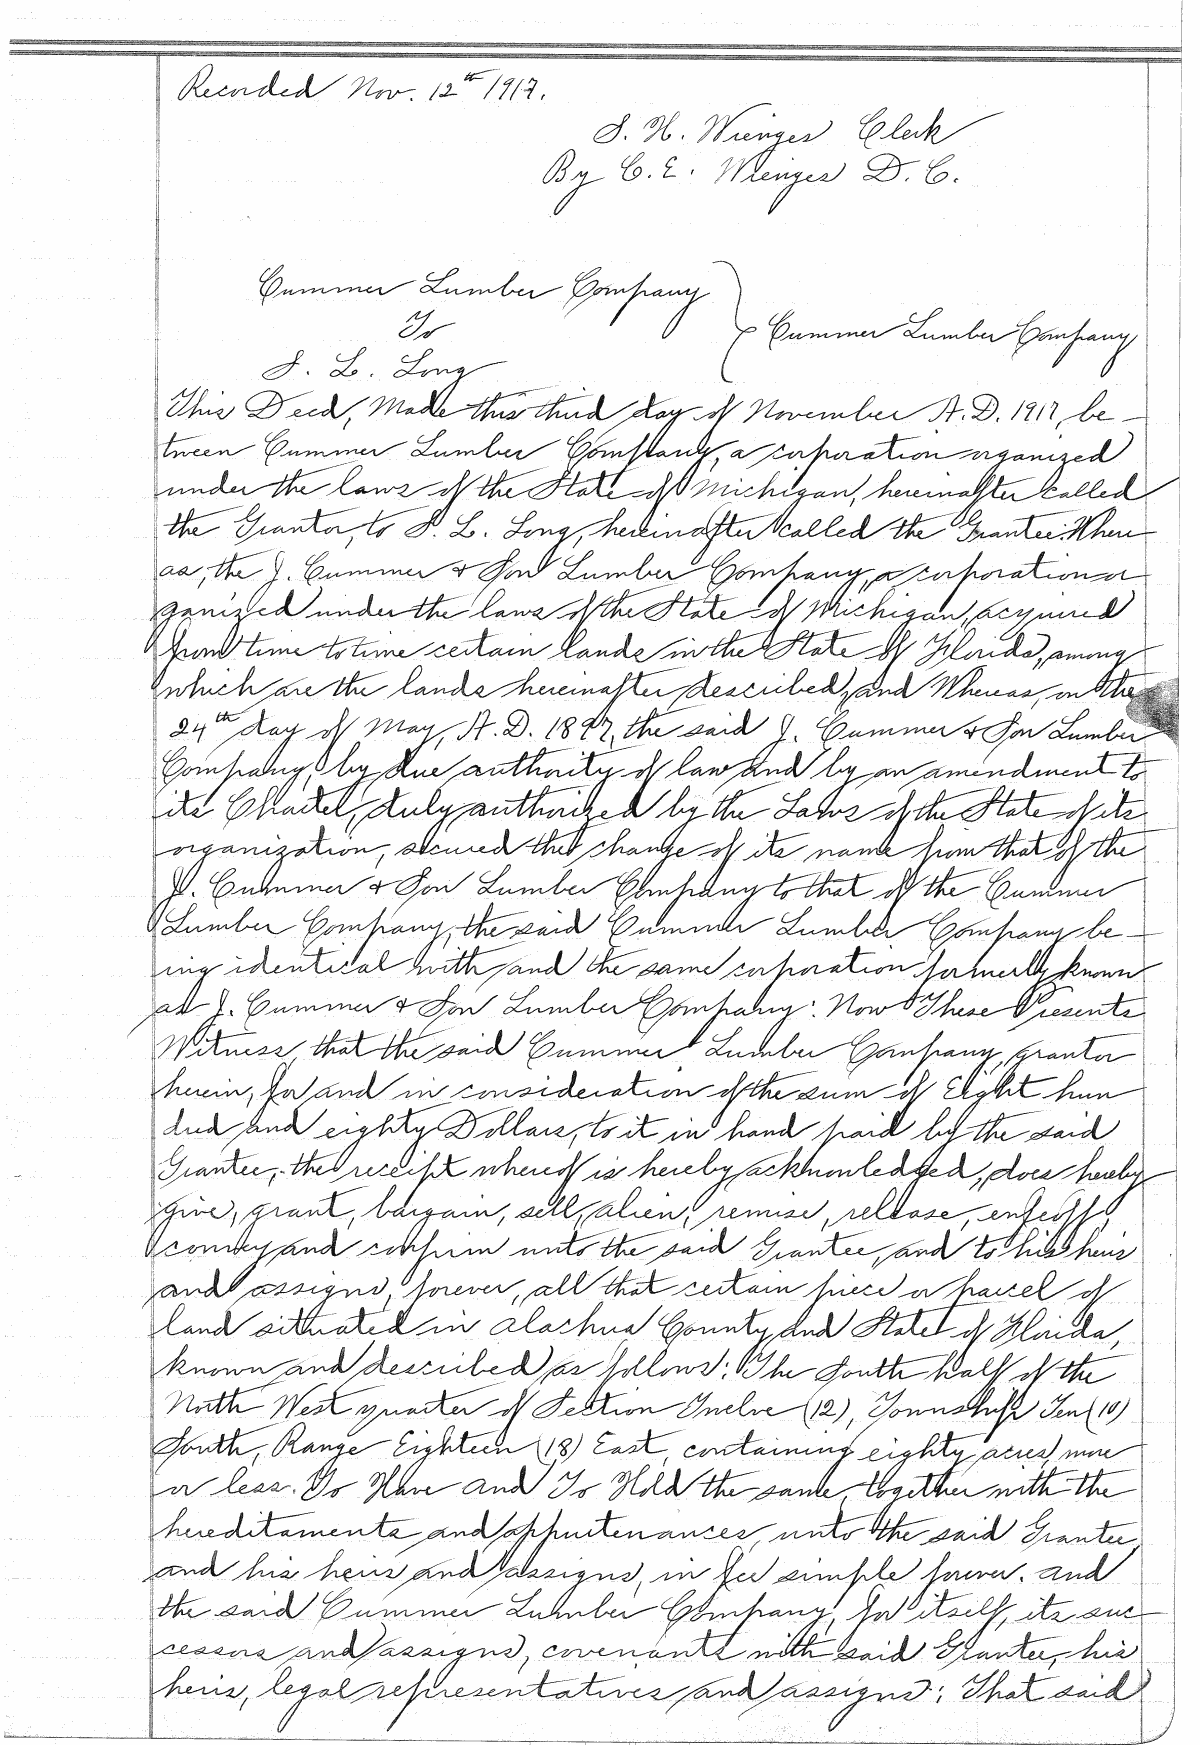 Recorded Nov. 12th 1917.
S. H. Wienges Clerk
By C. E. Wienges D. C.
Cummer Lumber Company
To
S. L. Long
Cummer Lumber Company
This Deed, Made this third day of November A.D. 1917, be-
tween Cummer Lumber Company, a corporation organized
under the laws of the State of Michigan, hereinafter called
the Grantor, to S. L. Long, hereinafter called the Grantee: Where
as, the J. Cummer & Son Lumber Company, a corporation or
ganized under the laws of the State of Michigan, acquired
from time to time certain lands in the State of Florida, among
which are the lands hereinafter described, and Whereas, on the
24th day of May, A.D. 1897, the said J. Cummer & Son Lumber
Company, by due authority of law and by an amendment to
its Charter, duly authorized by the Laws of the State of its
organization, secured the change of its name from that of the
J. Cummer & Son Lumber Company to that of the Cummer
Lumber Company, the said Cummer Lumber Company be-
ing identical with and the same corporation formerly known
as J. Cummer & Son Lumber Company: Now These Presents
Witness, that the said Cummer Lumber Company, grantor
herein, for and in consideration of the sum of Eight hun
dred and eighty Dollars, to it in hand paid by the said
Grantee, the receipt whereof is hereby acknowledged, does hereby
give, grant, bargain, sell, alien, remise, release, enfeoff,
convey and confirm unto the said Grantee, and to his heirs
and assigns, forever, all that certain piece or parcel of
land situated in Alachua County and State of Florida,
known and described as follows: The South half of the
North West quarter of Section Twelve (12), Township Ten (10)
South, Range Eighteen (18) East, containing eighty acres, more
or less. To Have and To Hold the same, together with the
hereditaments and appurtenances, unto the said Grantee,
and his heirs and assigns, in fee simple forever. And
the said Cummer Lumber Company, for itself, its suc
cessors and assigns, covenants with said Grantee, his
heirs, legal representatives and assigns: That said